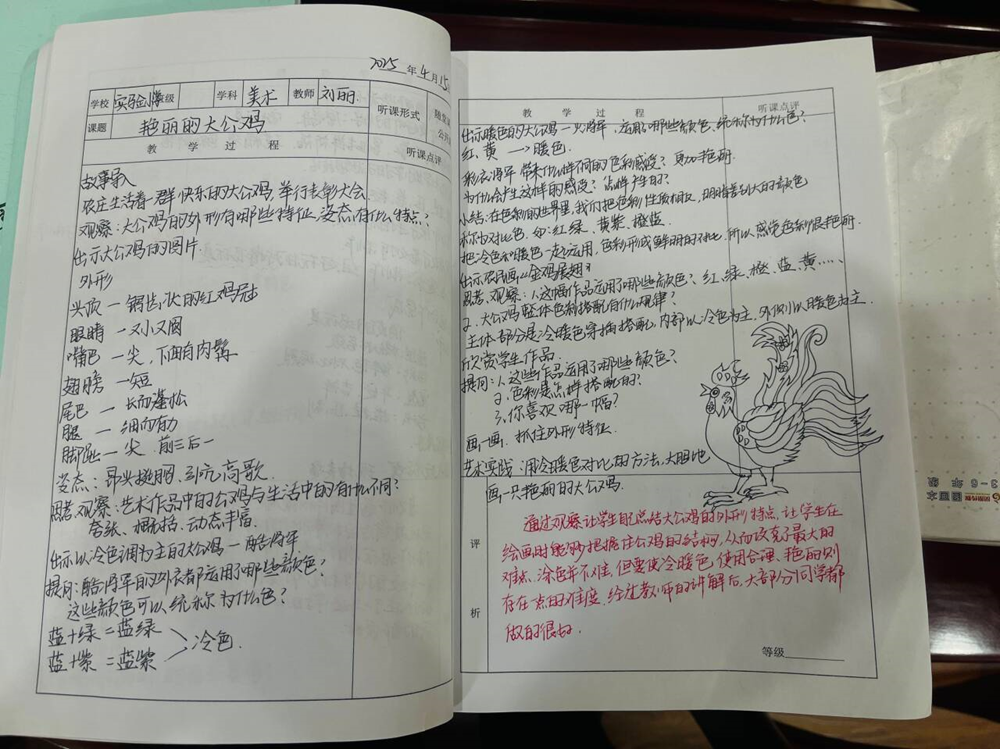 2025 年 4 月 15
学校 实验小学 班级 学科 美术 教师 刘丽 听课形式
课题 艳丽的大公鸡
教 学 过 程 听课点评
故事导入
农庄生活着一群快乐的大公鸡,举行表彰大会
观察:大公鸡的外形有哪些特征,姿态有什么特点?
出示大公鸡的图片.
外形
头顶 — 锯齿状的红鸡冠
眼睛 — 又小又圆
嘴巴 — 尖,下面有肉髯
翅膀 — 短
尾巴 — 长而蓬松
腿 — 细而有力
脚趾 — 尖. 前三后一
姿态:昂头挺胸、引吭高歌.
思考、观察:艺术作品中的公鸡与生活中的有什么不同?
夸张、概括、动态丰富.
出示以冷色调为主的大公鸡 — 酷将军
提问:酷将军的外衣都运用了哪些颜色?
这些颜色可以统称为什么色?
蓝+绿=蓝绿
蓝+紫=蓝紫
冷色.
教 学 过 程 听课点评
出示暖色的大公鸡 — 火将军,运用哪些颜色、统称为什么色?
红、黄 → 暖色.
彩衣将军 带来什么样不同的色彩感受? 更加艳丽.
为什么会产生这样的感受? 怎样产生的?
小结:在色彩的世界里,我们把色彩性质相反,明暗差别大的颜色
称为对比色. 如:红绿、黄紫、橙蓝.
把冷色和暖色一起运用,色彩形成鲜明的对比,所以感觉色彩很艳丽.
出示农民画《金鸡展翅》
思考、观察:1、这幅作品运用了哪些颜色? 红、绿、橙、蓝、黄……
2、大公鸡整体色彩搭配有什么规律?
主体部分是冷暖色穿插搭配,内部以冷色为主,外侧以暖色为主.
欣赏学生作品.
提问:1、这些作品运用了哪些颜色?
2、色彩是怎样搭配的?
3、你喜欢哪一幅?
画一画:抓住外形特征
艺术实践:用冷暖色对比的方法,大胆地
画一只艳丽的大公鸡.
评
析
通过观察让学生自己总结大公鸡的外形特点,让学生在
绘画时能够把握住公鸡的结构,从而攻克了最大的
难点. 涂色并不难,但要使冷暖色,使用合理、艳丽则
存在一点的难度,经过教师的讲解后,大部分同学都
做的很好.
等级
图画本
3-6年级